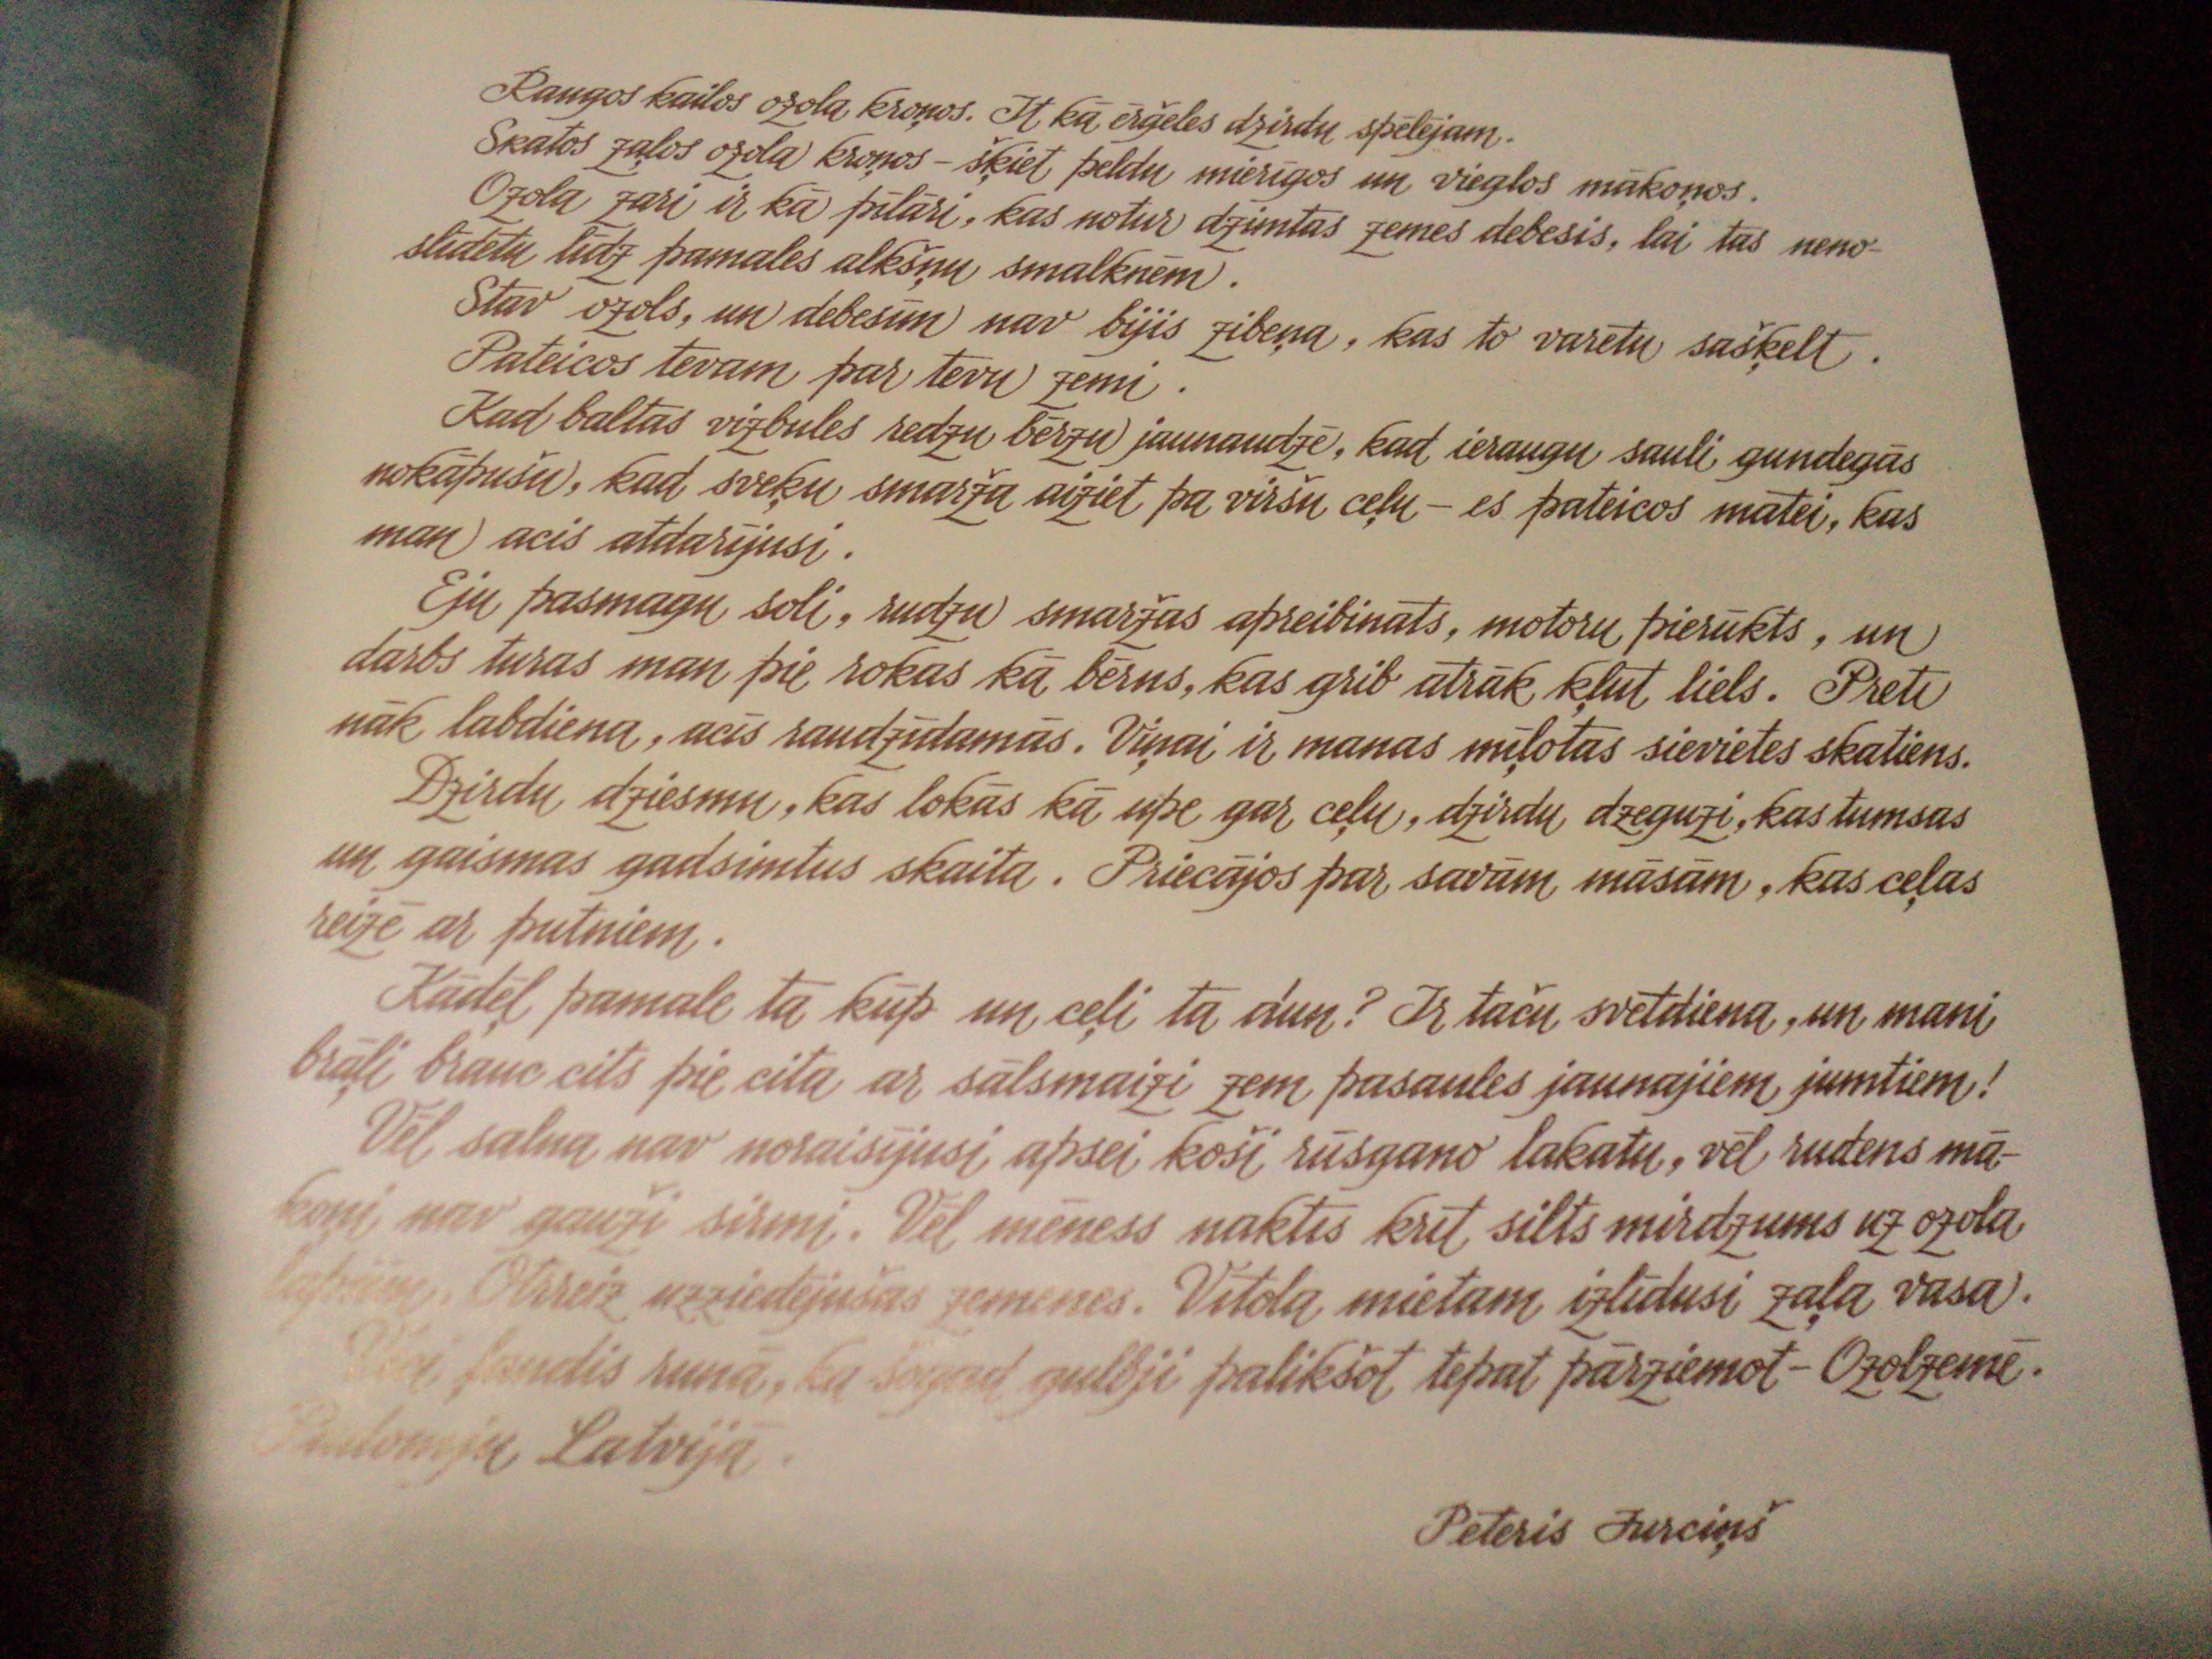 Raugos kailos ozola kroņos. It kā ērģeles dzirdu spēlējam.
Skatos zaļos ozola kroņos – šķiet peldu mierīgos un vieglos mākoņos.
Ozola zari ir kā pīlāri, kas notur dzimtās zemes debesis, lai tās neno-
slīdētu līdz pamales alkšņu smalknēm.
Stāv ozols, un debesīm nav bijis zibeņa, kas to varētu sašķelt.
Pateicos tēvam par tēvu zemi.
Kad baltās vizbules redzu bērzu jaunaudzē, kad ieraugu sauli gundegās
nokāpušu, kad sveķu smarža aiziet pa viršu ceļu – es pateicos mātei, kas
man acis atdarījusi.
Eju pasmagu soli, rudzu smaržas apreibināts, motoru pierūkts, un
darbs turas man pie rokas kā bērns, kas grib ātrāk kļūt liels. Pretī
nāk labdiena, acīs raudzīdamās. Viņai ir manas mīļotās sievietes skatiens.
Dzirdu dziesmu, kas lokās kā upe gar ceļu, dzirdu dzeguzi, kas tumsas
un gaismas gadsimtus skaita. Priecājos par savām māsām, kas ceļas
reizē ar putniem.
Kādēļ pamale tā kūp un ceļi tā dun? Ir taču svētdiena, un mani
brāļi brauc cits pie cita ar sālsmaizi zem pasaules jaunajiem jumtiem!
Vēl salna nav noraisījusi apsei koši rūsgano lakatu, vēl rudens mā-
koņi nav gauži sirmi. Vēl mēness naktīs krīt silts mirdzums uz ozola
lapām. Otrreiz uzziedējušas zemenes. Vītola mietam izlīdusi zaļa vasa.
Veci ļaudis runā, ka šogad gulbji palikšot tepat pārziemot – Ozolzemē.
Padomju Latvijā.
Pēteris Jurciņš